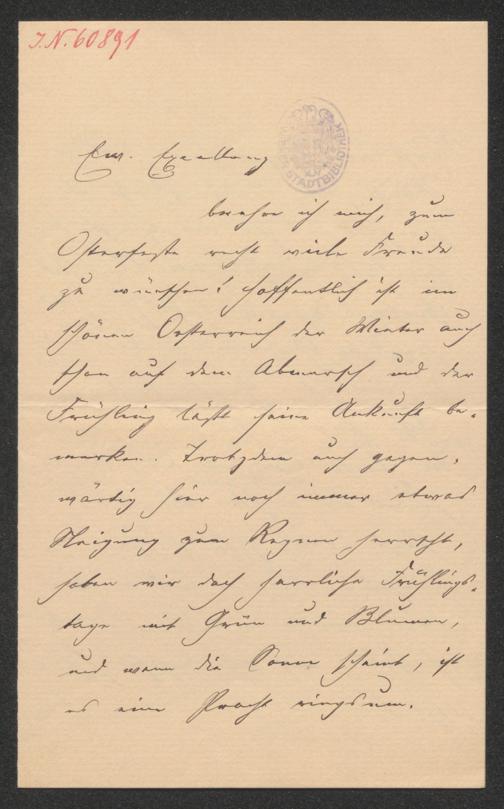 J.N. 60891
STADTBIBLIOTHEK
Ew. Excellenz
beehre ich mich, zum
Osterfeste recht viele Freude
zu wünschen! Hoffentlich ist im
schönen Oesterreich der Winter auch
schon auf dem Abmarsch und der
Frühling läßt seine Ankunft be-
merken. Trotzdem auch gegen-
wärtig hier noch immer etwas
Neigung zum Regnen herrscht,
haben wir doch herrliche Frühlings-
tage mit Grün und Blumen,
und wenn die Sonne scheint, ist
es eine Pracht ringsum.